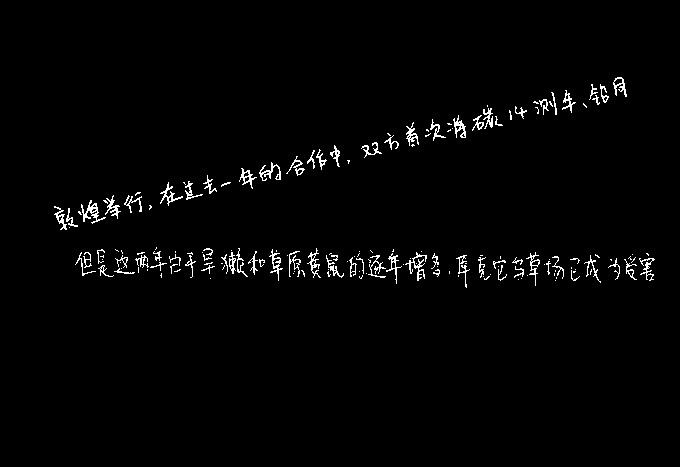 敦煌举行,在过去一年的合作中,双方首次将碳14测年、铅同
但是这两年由于旱獭和草原黄鼠的逐年增多,库克它乌草场已成为受害